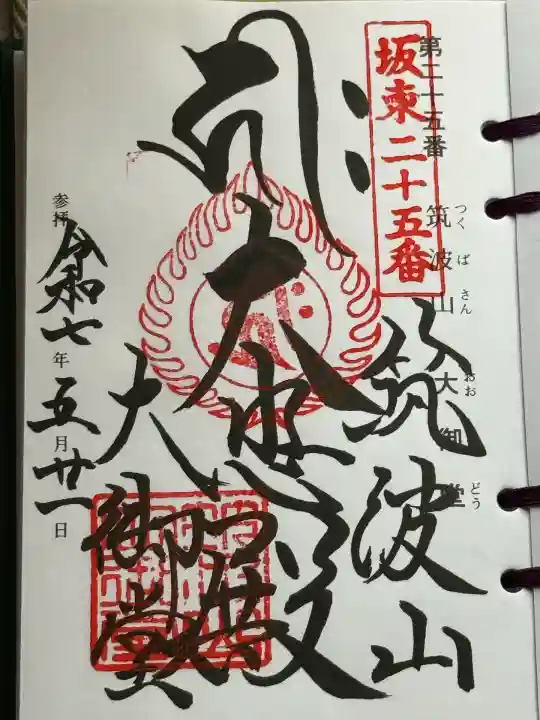 第二十五番
坂東二十五番
筑波山 大御堂
つくばさん おおどう
筑波山
大悲殿
大御堂
参拝 令和七年五月廿一日